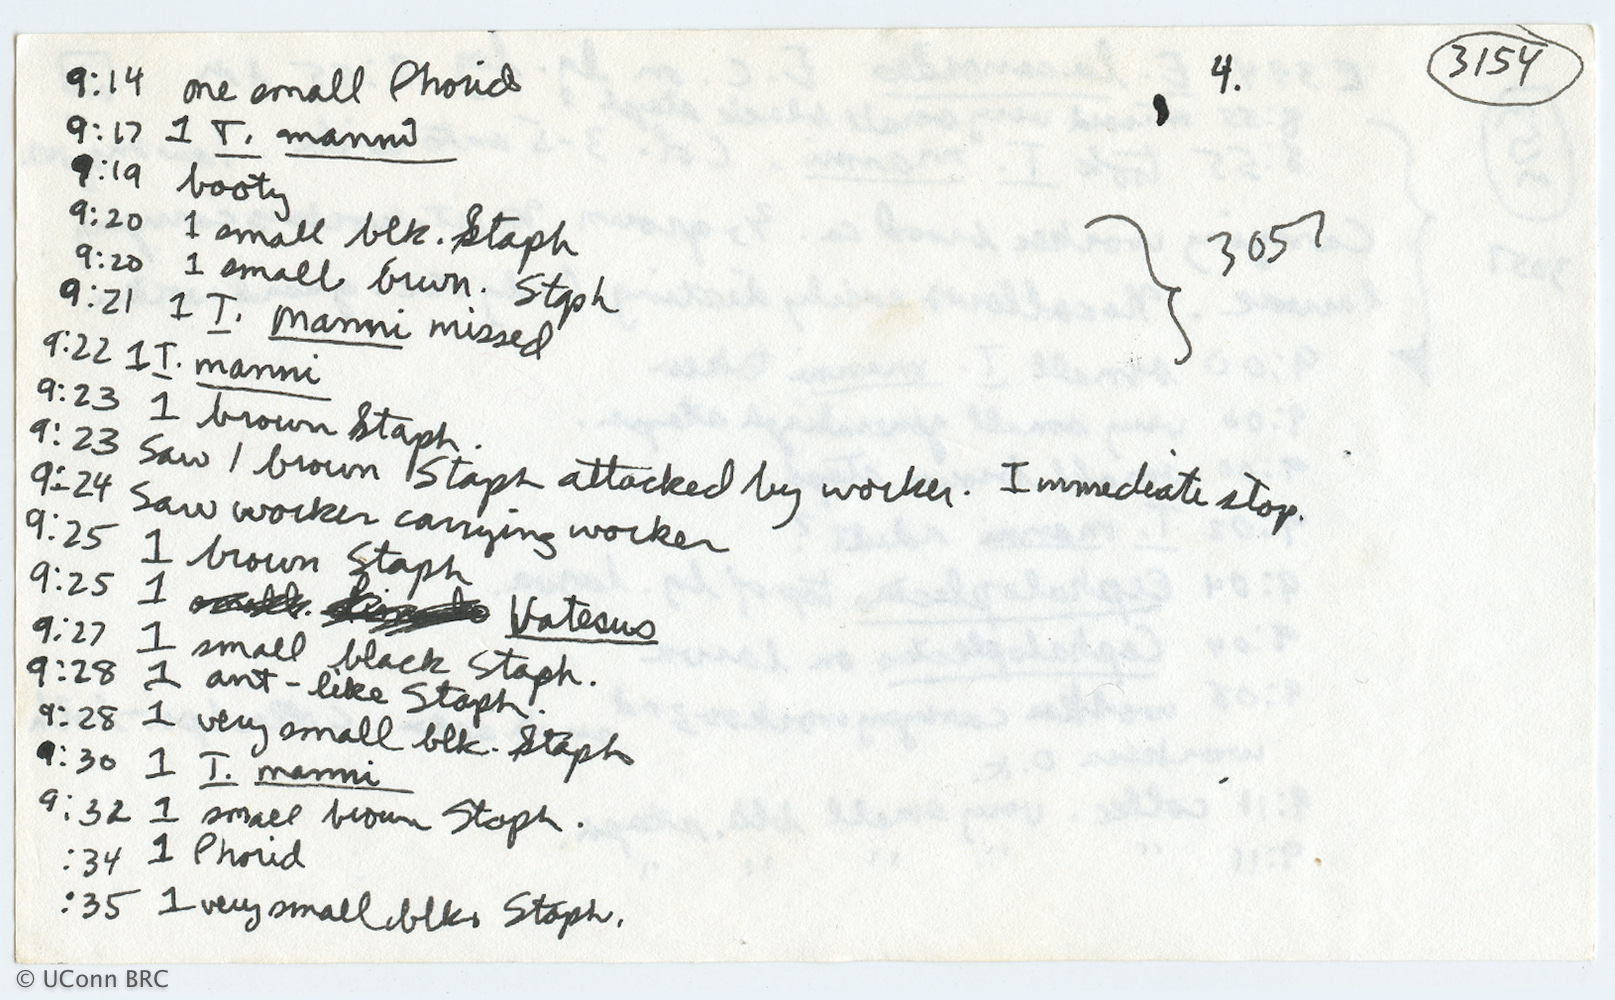 4. 3154
9:14 one small Phorid
9:17 1 T. manni
9:19 booty
9:20 1 small blk. Staph
9:20 1 small brwn. Staph
9:21 1 T. manni missed
9:22 1 T. manni
9:23 1 brown Staph.
9:23 Saw 1 brown Staph attacked by worker. Immediate stop.
9:24 Saw worker carrying worker
9:25 1 brown Staph
9:25 1 Vatesus
9:27 1 small black Staph.
9:28 1 ant-like Staph.
9:28 1 very small blk. Staph
9:30 1 T. manni
9:32 1 small brown Staph.
:34 1 Phorid
:35 1 very small blk. Staph.
} 3057
© UConn BRC